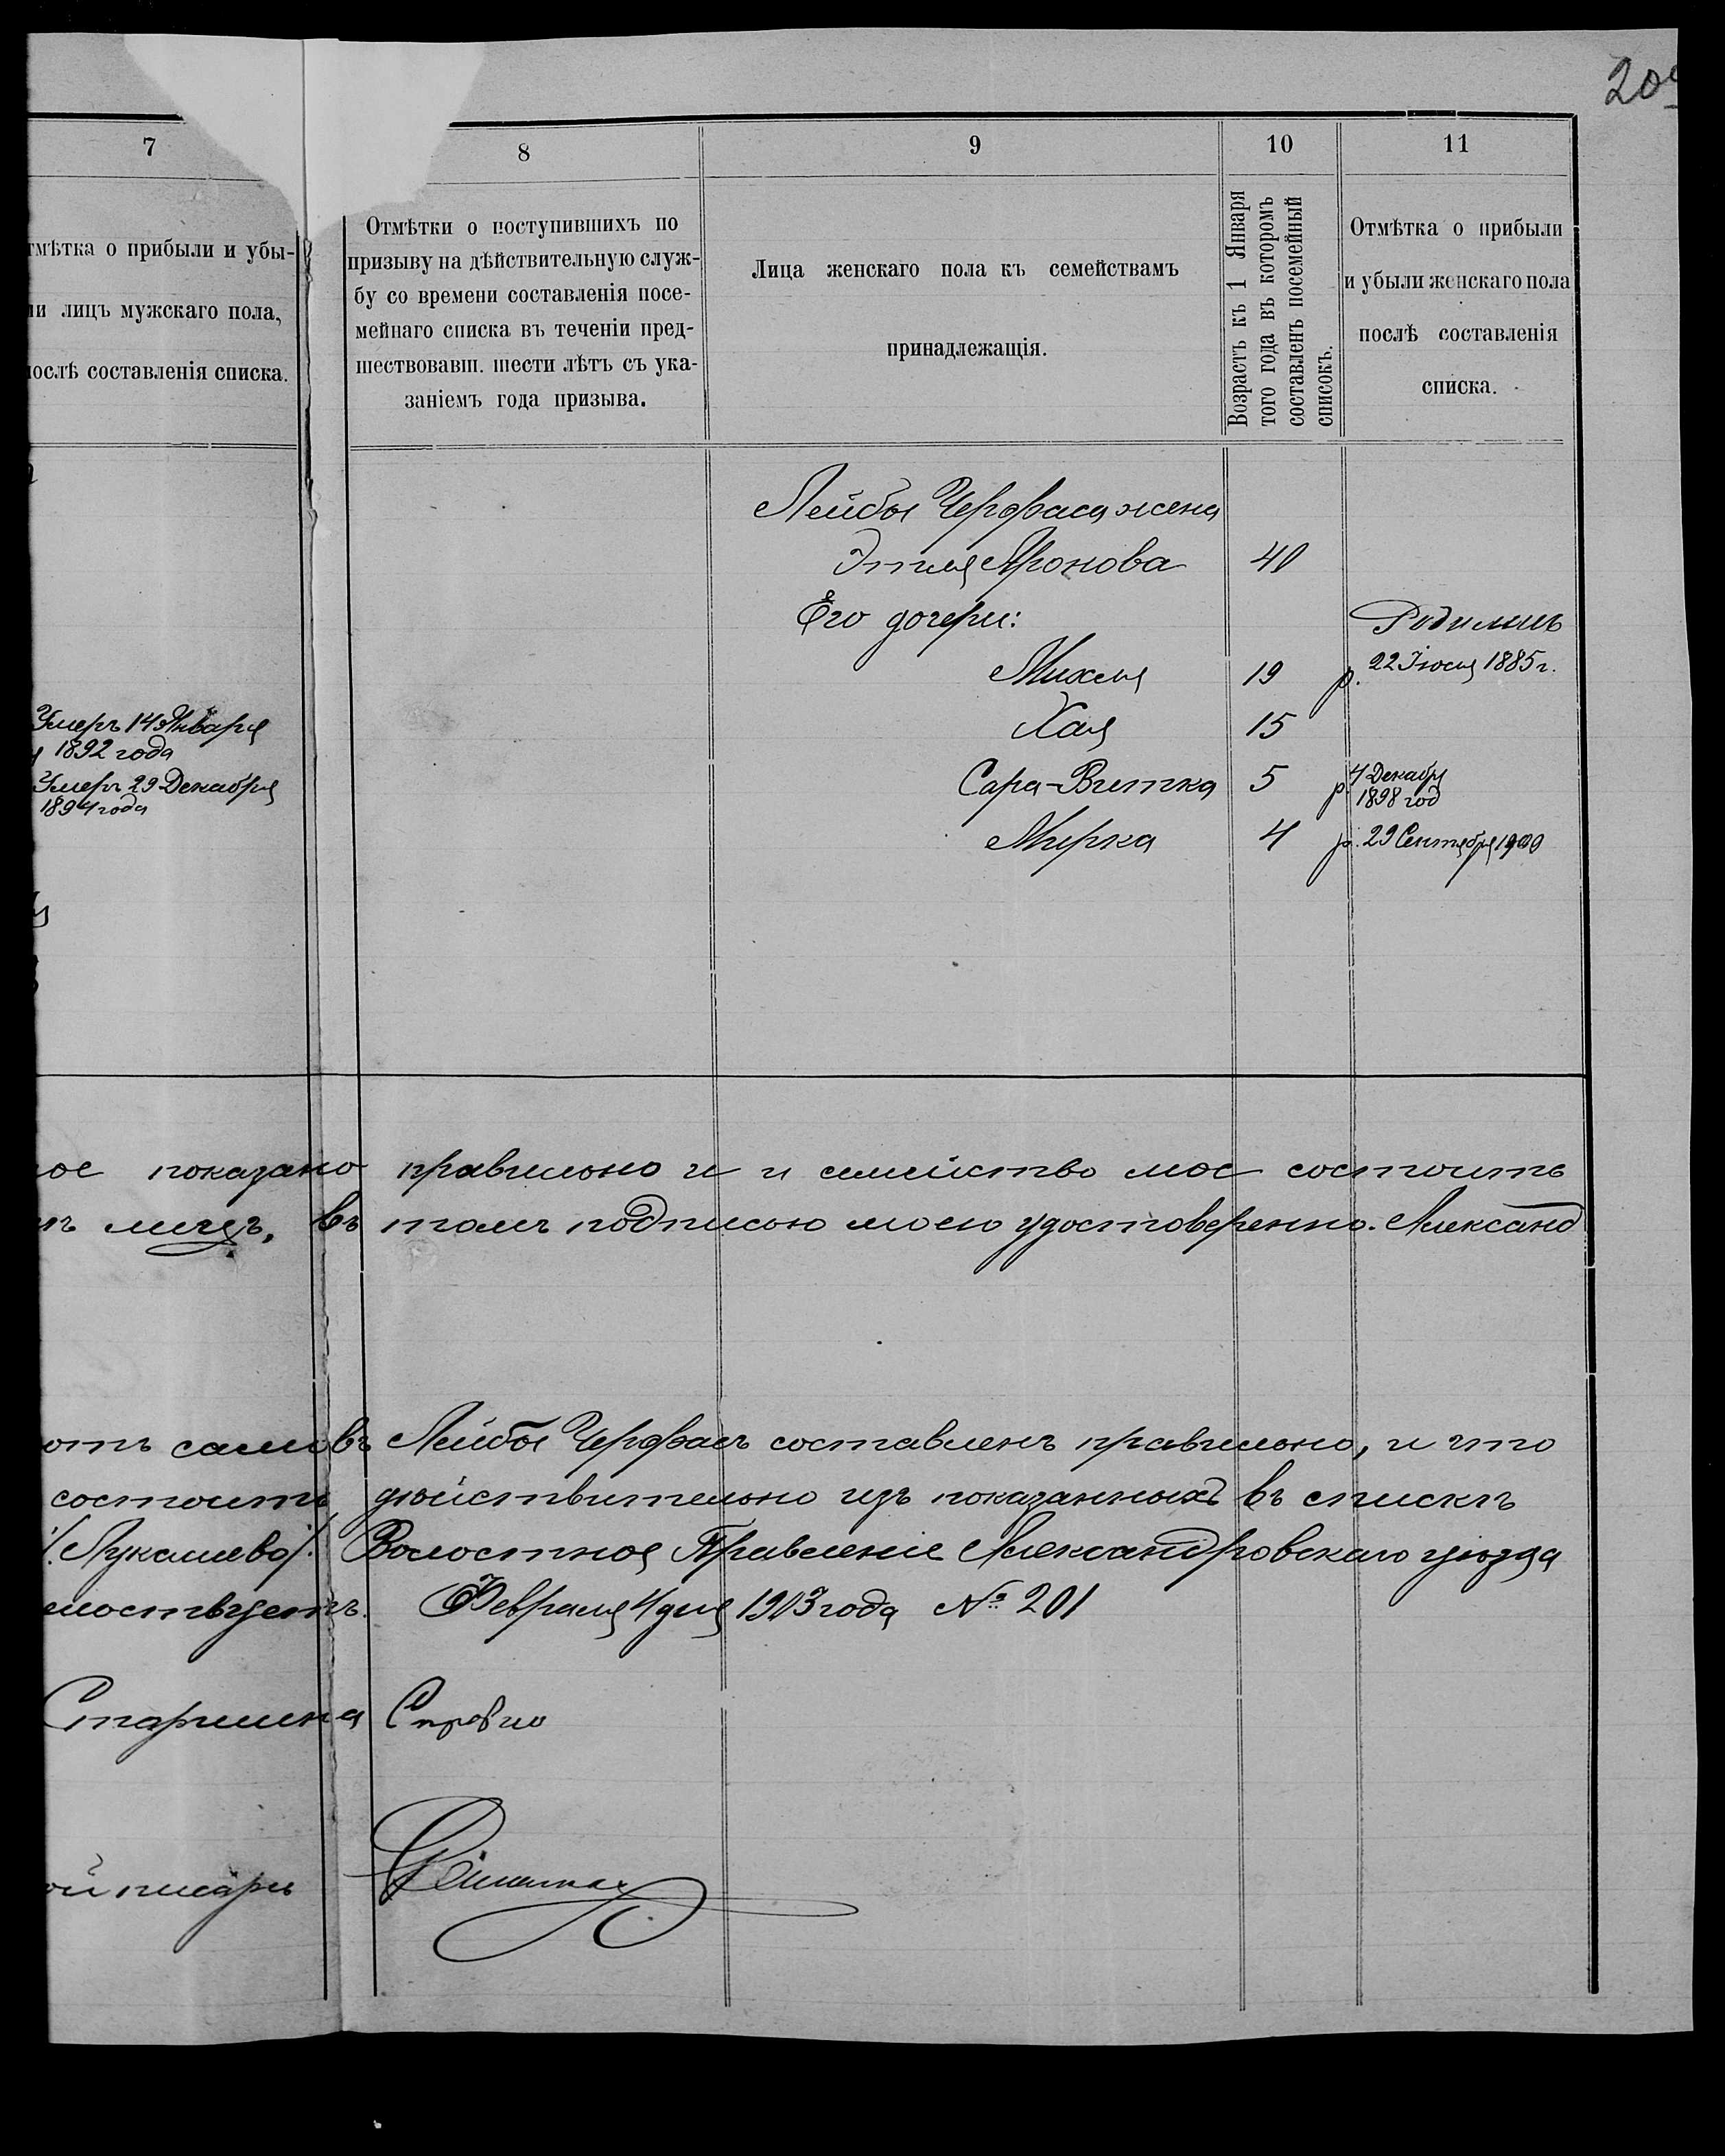 7
8
9
10
11
тмѣтка о прибыли и убы-
ли лицъ мужскаго пола,
послѣ составленія списка.
Отмѣтки о поступившихъ по
призыву на дѣйствительную служ-
бу со времени составленія посе-
мейнаго списка въ теченіи пред-
шествовавш. шести лѣтъ съ ука-
заніемъ года призыва.
Лица женскаго пола къ семействамъ
принадлежащія.
Возрастъ къ 1 Января
того года въ которомъ
составленъ посемейный
списокъ.
Отмѣтка о прибыли
и убыли женскаго пола
послѣ составленія
списка.
Лейбы Черфаса жена
Этля Аронова 40
Его дочери:
Родилиль
Михля 19 р. 22 Іюля 1885 г.
Умеръ 14 Января
1892 года
Хая 15
Умеръ 29 Декабря
1894 года
Сара-Витка 5 р. 4 Декабр
1898 год
Мирка 4 р. 29 Сентября 1900
ое показано правильно и и семейство мое состоитъ
лицъ, въ томъ подписью моею удостоверенно. Александ
Лейбы Черфасъ составленъ правильно, и что
состоитъ дѣйствительно изъ показанныхъ въ спискѣ
/. Лукашево/. Волостное Правленіе Александровскаго уѣзда
Февраля 4 дня 1903 года № 201
Старшина
ой писарь